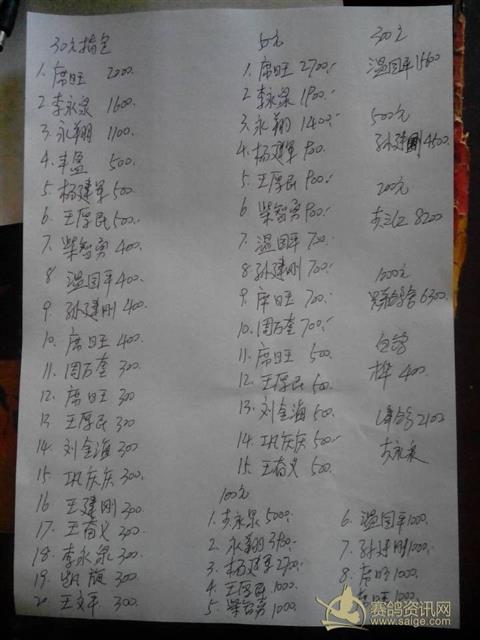 30元指定
1. 席旺 2000
2 李永泉 1600
3. 永翔 1100
4. 丰盈 500
5. 杨建军 500
6. 王厚民 500
7. 柴智勇 400
8 温国平 400
9. 孙建刚 400
10. 席旺 400
11. 周万奎 300
12. 席旺 300
13 王厚民 300
14. 刘金海 300
15 巩庆庆 300.
16 王建刚 300
17. 王奋义 300
18. 李永泉 300
19. 300
20. 王文平 300
50元
1. 席旺 2700
2 李永泉 1800
3. 永翔 1400
4. 杨建军 900
5. 王厚民 900
6 柴智勇 900
7. 温国平 700
8. 孙建刚 700.
9. 席旺 700
10. 周万奎 700
11. 席旺 500
12. 王厚民 500
13. 刘金海 500
14. 巩庆庆 500
15. 王奋义 500
300元
温国平
500元
孙建刚 4600
200元
8200
1000元
6300
400
2100
李永泉
100元
1. 李永泉 5000
2. 永翔
3. 杨建军 2700
4. 王厚民 1000
5. 柴智勇 1000
6. 温国平 1000
7. 孙建刚 1000
8. 席旺 1000
席旺 1000
赛鸽资讯网
www.saige.com